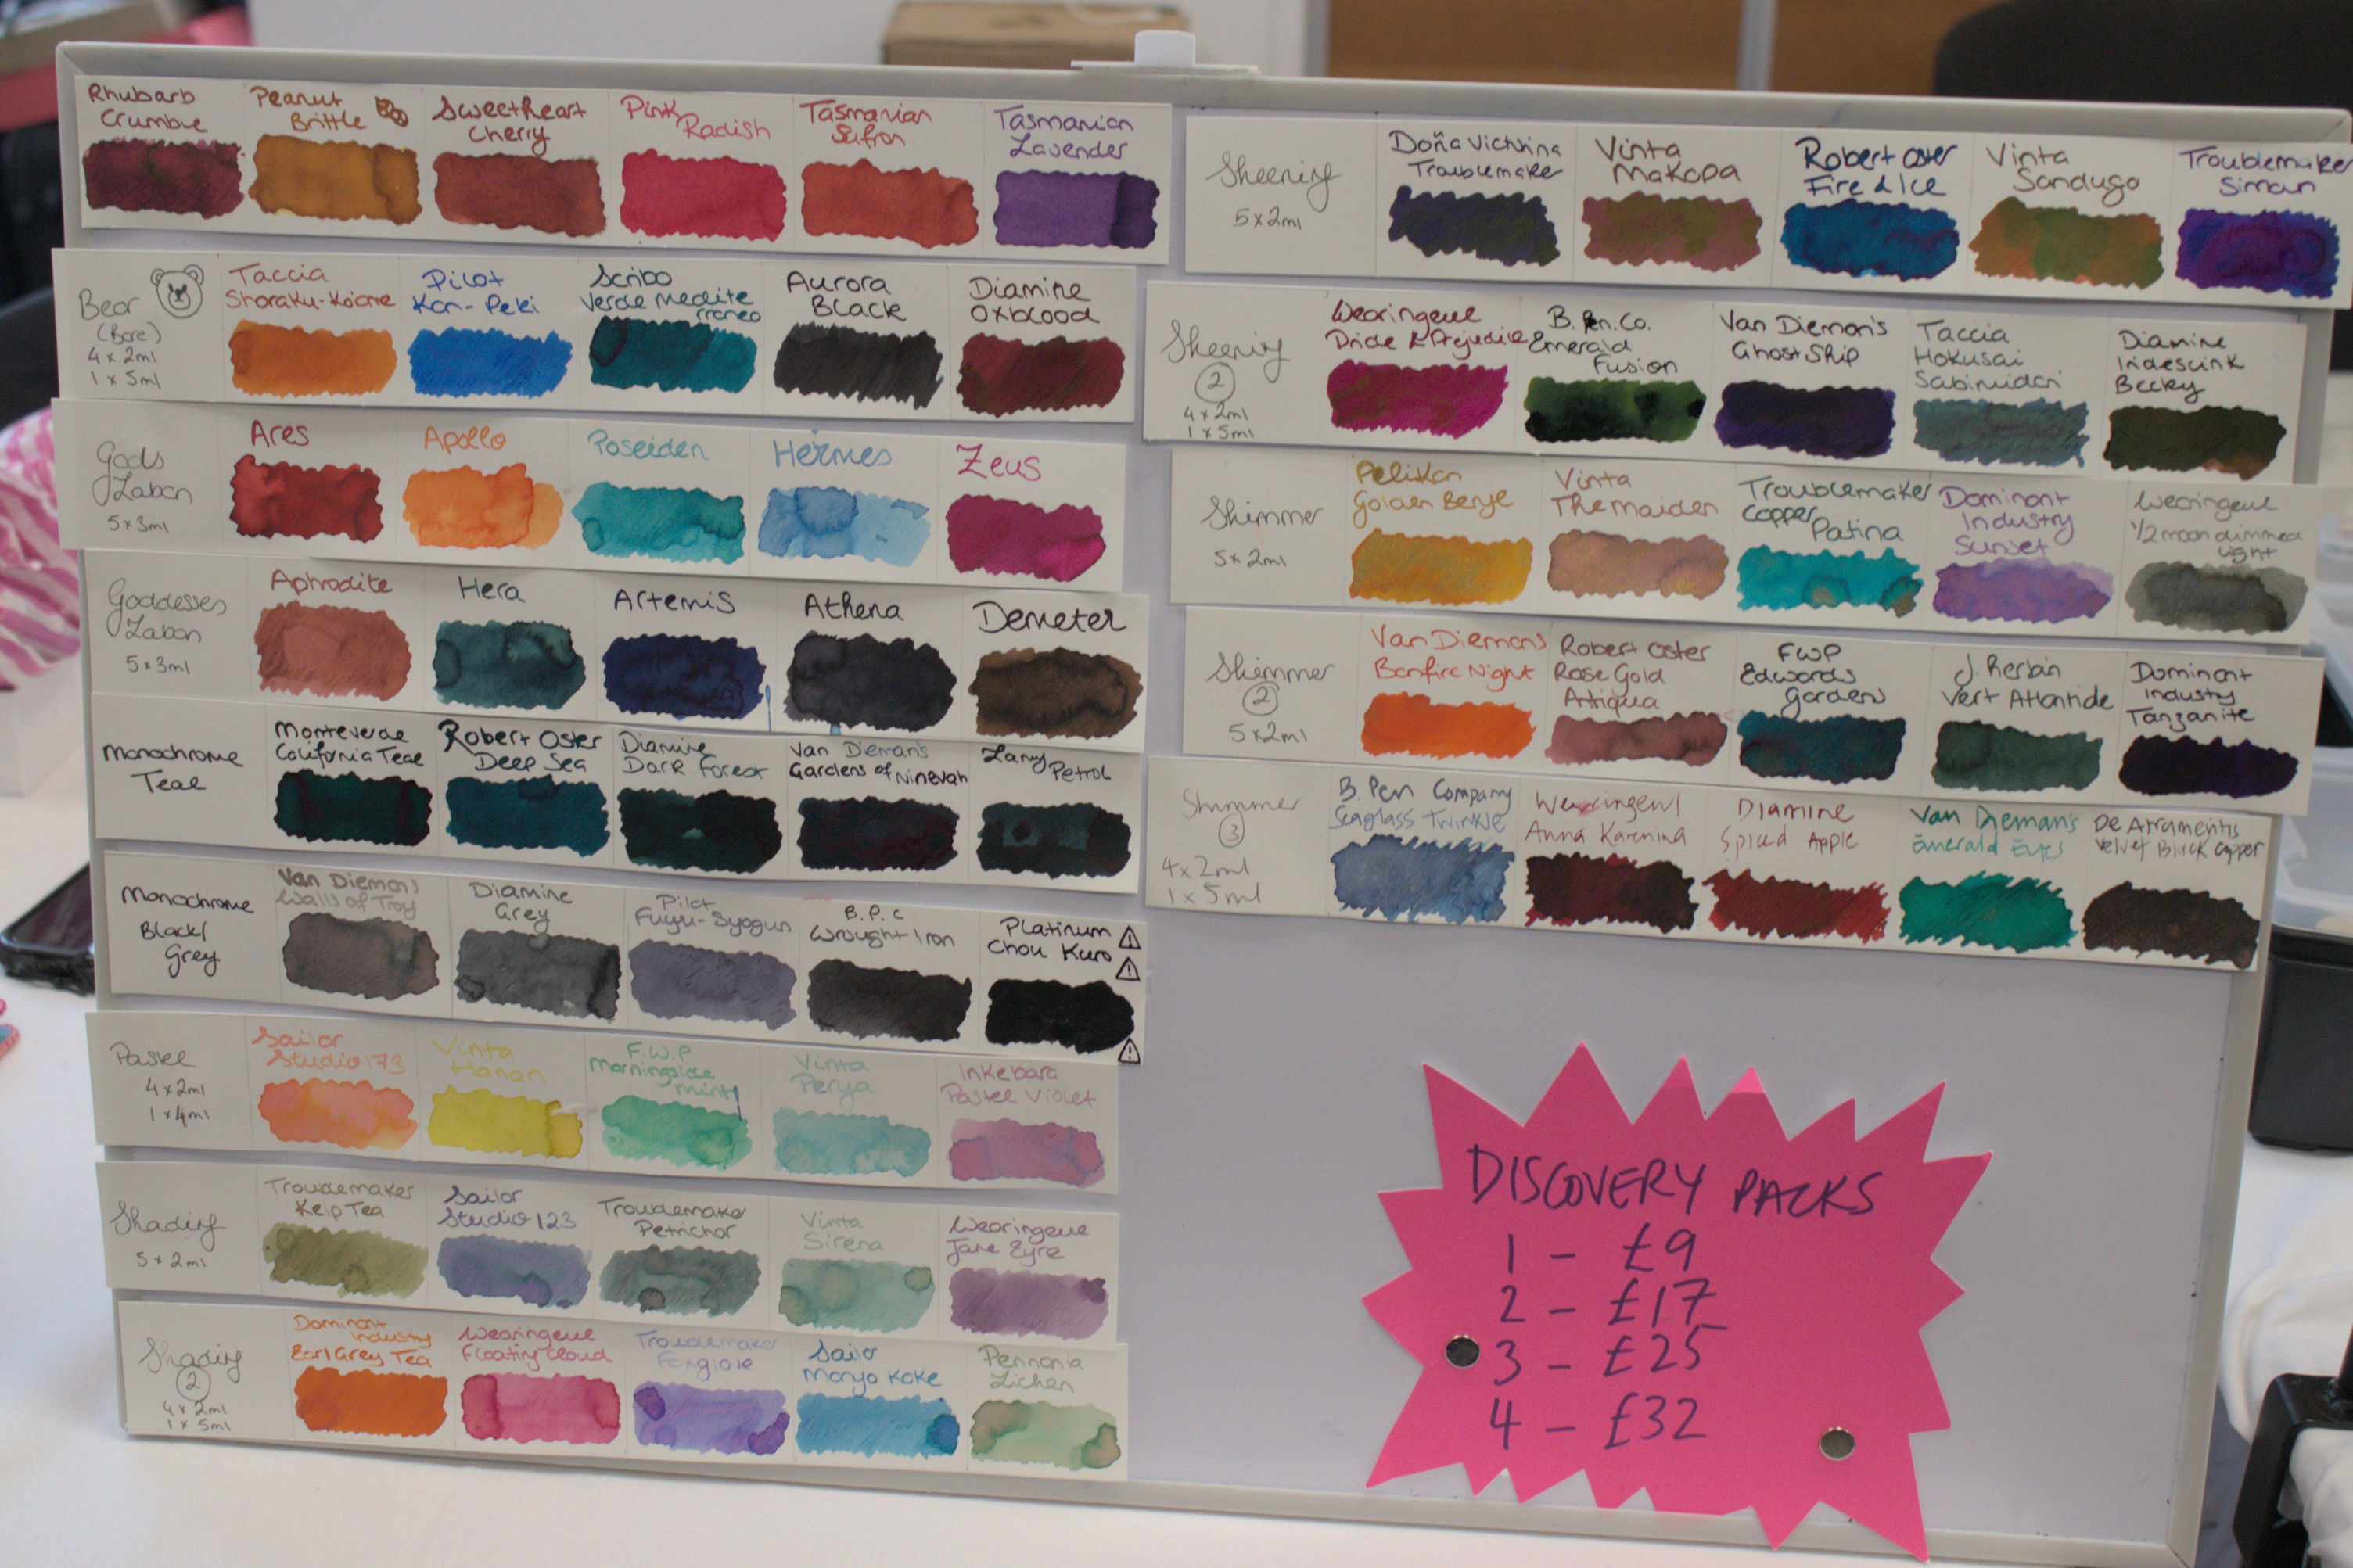 Rhubarb
Crumble
Peanut
Brittle
Sweetheart
Cherry
Pink
Radish
Tasmanian
Safron
Tasmanian
Lavender
Bear
(Bore)
4 x 2ml
1 x 5ml
Taccia
Sharaku-Koiame
Pilot
Kon-Peki
Scribo
Verde Medite
rraneo
Aurora
Black
Diamine
Oxblood
Gods
Laban
5 x 3ml
Ares
Apollo
Poseiden
Hermes
Zeus
Goddesses
Laban
5 x 3ml
Aphrodite
Hera
Artemis
Athena
Demeter
Monochrome
Teal
Monteverde
California Teal
Robert Oster
Deep Sea
Diamine
Dark Forest
Van Dieman's
Gardens of Ninevah
Lamy
Petrol
Monochrome
Black/
Grey
Van Diemans
Walls of Troy
Diamine
Grey
Pilot
Fuyu-Syogun
B.P.C
Wrought Iron
Platinum
Chou Kuro
Pastel
4 x 2ml
1 x 4ml
Sailor
Studio 173
Vinta
Hanan
F.W.P
Morningside
Mint
Vinta
Perya
Inkebara
Pastel Violet
Shading
5 x 2ml
Troublemaker
Kelp Tea
Sailor
Studio 123
Troublemaker
Petrichor
Vinta
Sirena
Wearingeul
Jane Eyre
Shading
2
4 x 2ml
1 x 5ml
Dominant
Industry
Earl Grey Tea
Wearingeul
Floating Cloud
Troublemaker
Foxglove
Sailor
Manyo Koke
Pennonia
Lichen
Sheening
5 x 2ml
Doña Victorina
Troublemaker
Vinta
Makopa
Robert Oster
Fire & Ice
Vinta
Sandugo
Troublemaker
Simoun
Sheening
2
4 x 2ml
1 x 5ml
Wearingeul
Pride & Prejudice
B. Pen. Co.
Emerald
Fusion
Van Dieman's
Ghost Ship
Taccia
Hokusai
Sabimidori
Diamine
Iridescink
Becky
Shimmer
5 x 2ml
Pelikan
Golden Beryl
Vinta
The Maiden
Troublemaker
Copper
Patina
Dominant
Industry
Sunset
Wearingeul
1/2 moon dimmed
light
Shimmer
2
5 x 2ml
Van Diemans
Bonfire Night
Robert Oster
Rose Gold
Antiqua
FWP
Edwards
Gardens
J. Herbin
Vert Atlantide
Dominant
Industry
Tanzanite
Shimmer
3
4 x 2ml
1 x 5ml
B. Pen Company
Seaglass Twinkle
Wearingeul
Anna Karenina
Diamine
Spiced Apple
Van Dieman's
Emerald Eyes
De Atramentis
Velvet Black Copper
DISCOVERY PACKS
1 - £9
2 - £17
3 - £25
4 - £32